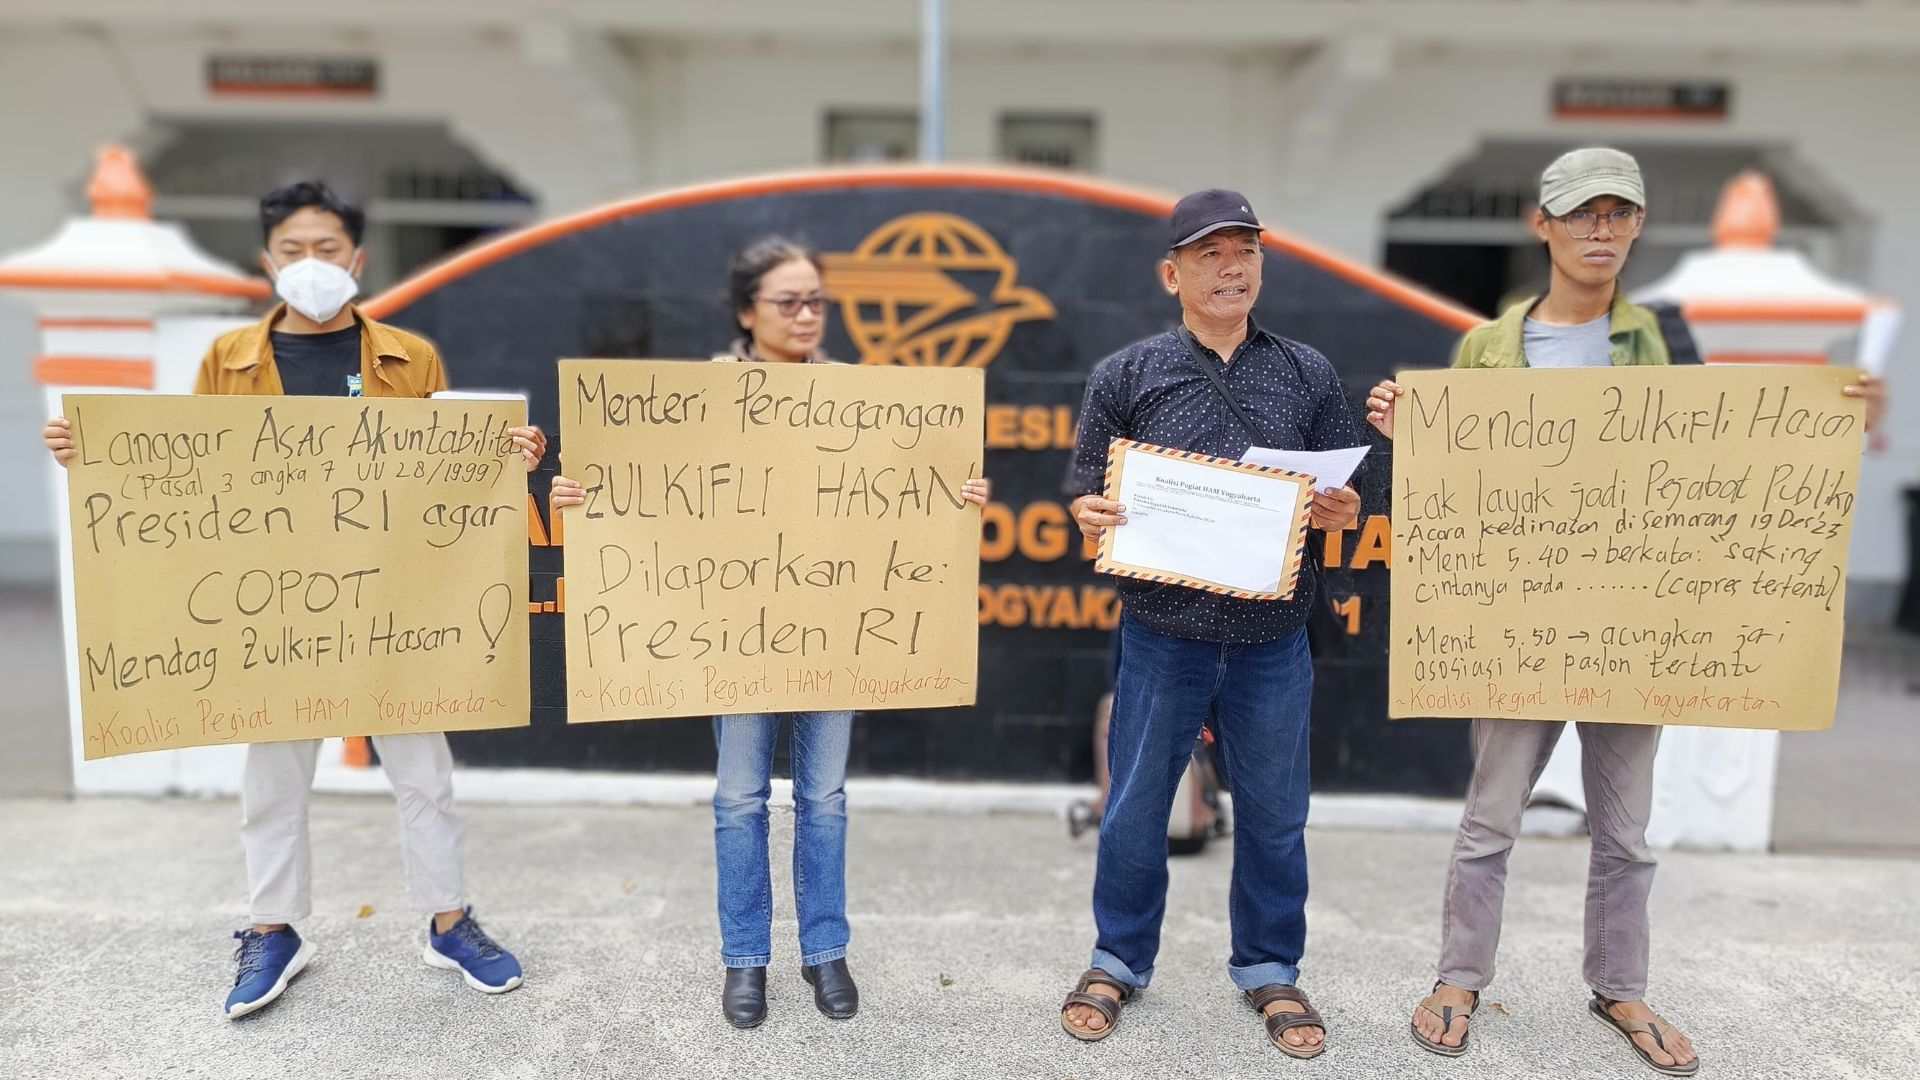 Langgar Asas Akuntabilitas
(Pasal 3 angka 7 UU 28/1999)
Presiden RI agar
COPOT
Mendag Zulkifli Hasan !
~Koalisi Pegiat HAM Yogyakarta~
Menteri Perdagangan
ZULKIFLI HASAN
Dilaporkan ke:
Presiden RI
~Koalisi Pegiat HAM Yogyakarta~
Koalisi Pegiat HAM Yogyakarta
Mendag Zulkifli Hasan
tak layak jadi Pejabat Publik
- Acara kedinasan di Semarang 19 Des 23
• Menit 5.40 → berkata: "saking
cintanya pada ....... (capres tertentu)
• Menit 5.50 → acungkan jari
asosiasi ke paslon tertentu
~Koalisi Pegiat HAM Yogyakarta~